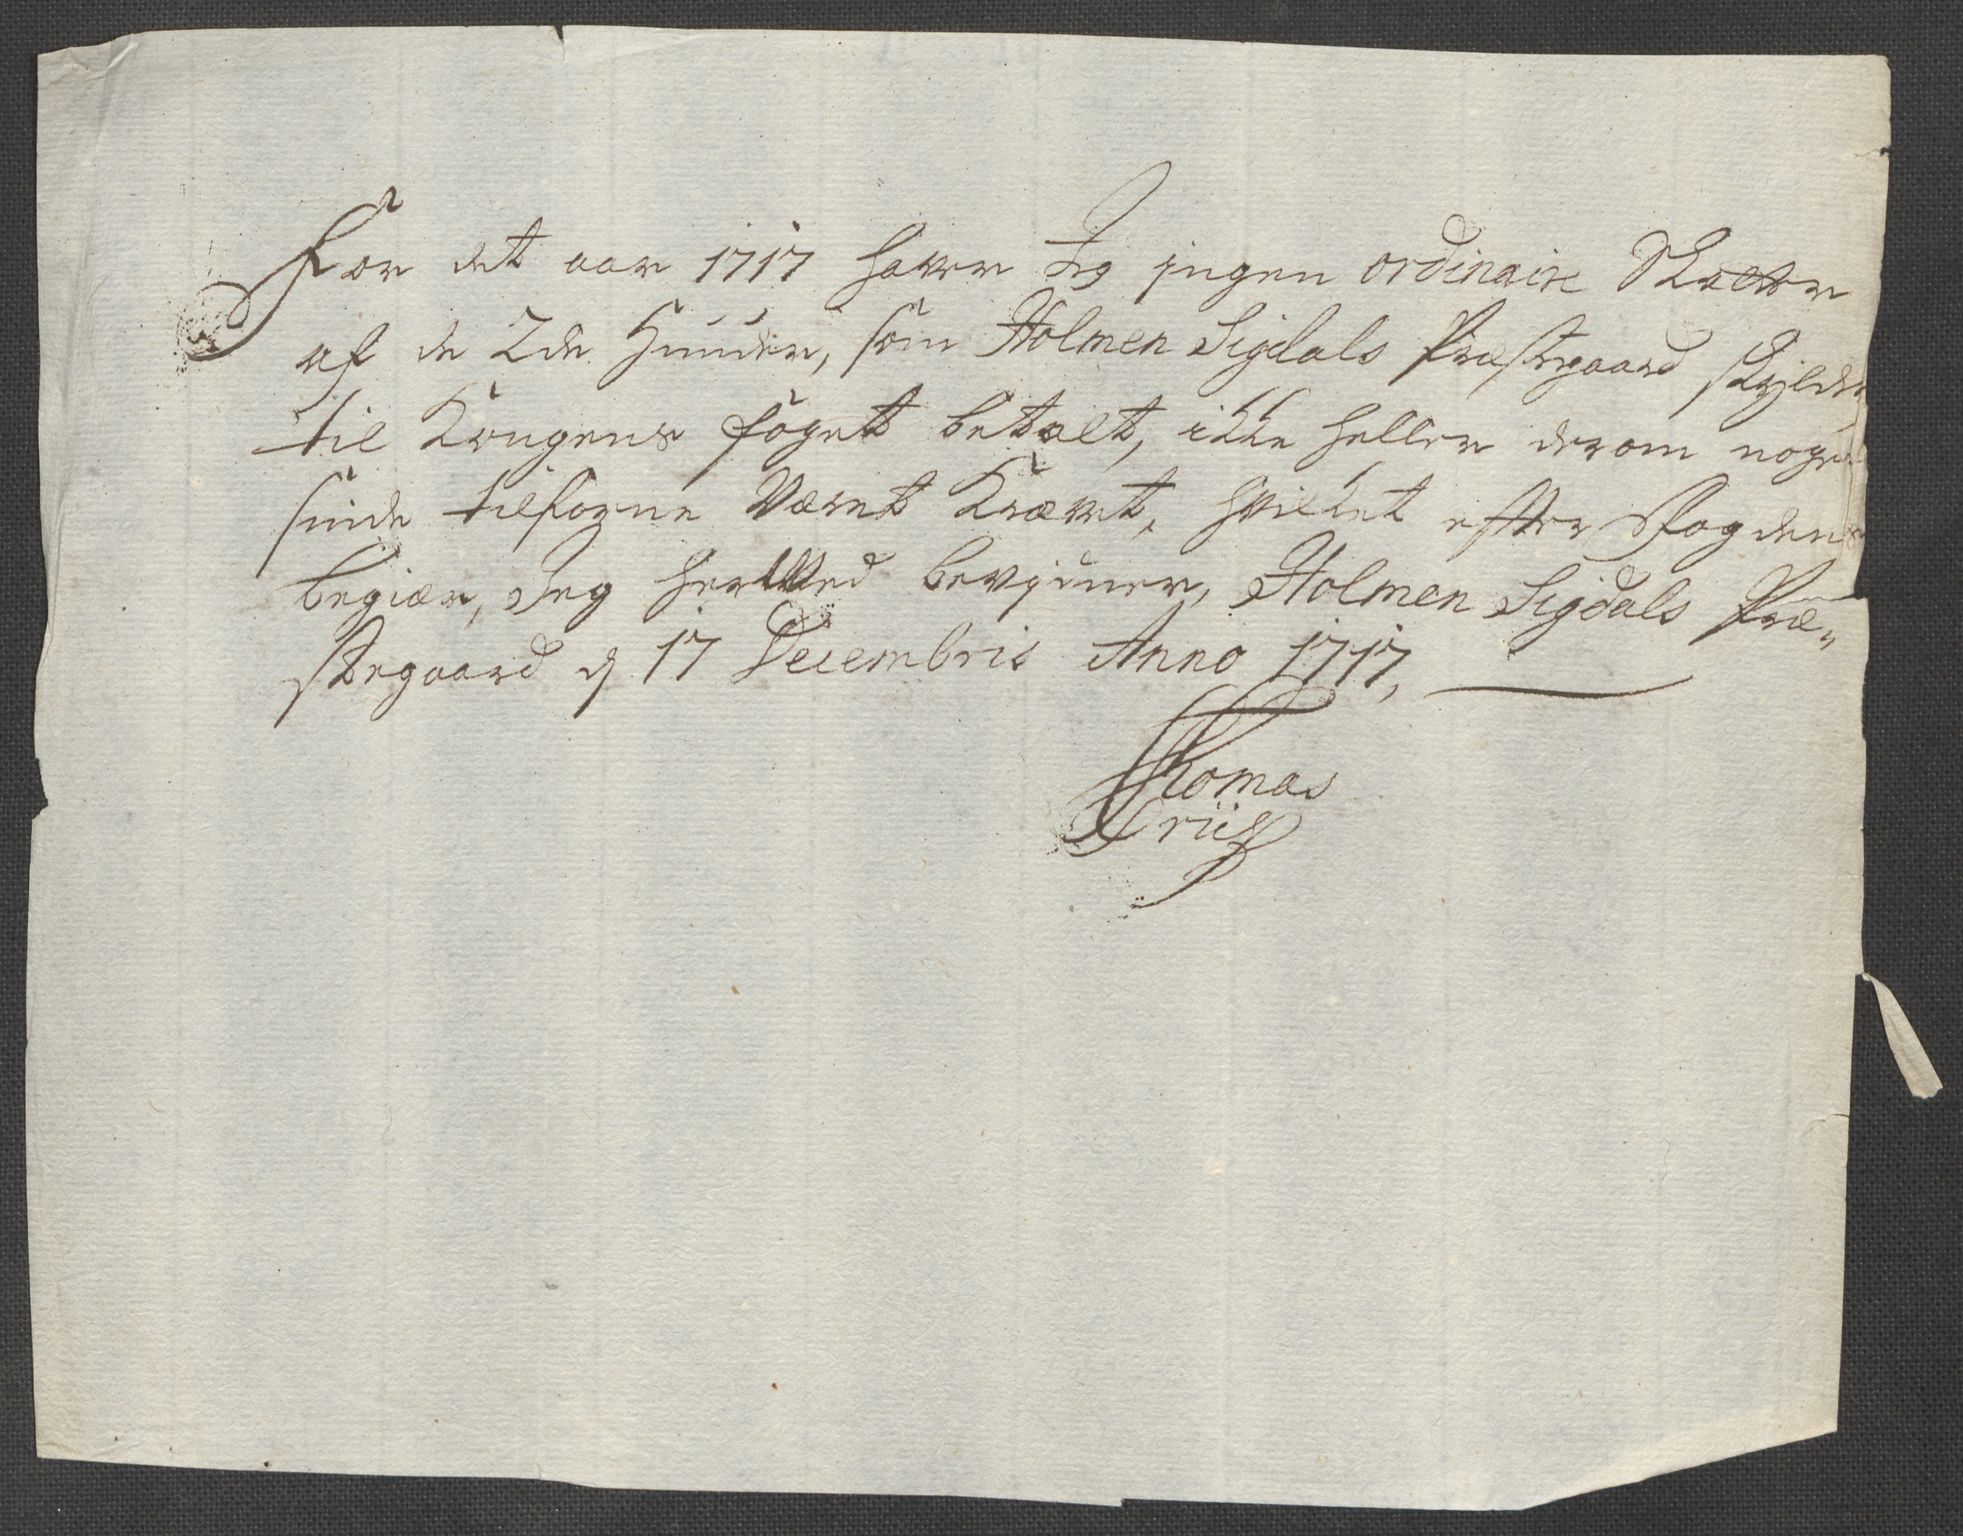 For det aar 1717 haver Jeg ingen ordinaire Skatter
af de 2de Huuder, som Holmen Sigdals Præstegaard skylder
til Kongens foget betalt, ikke heller derom nogen
sinde tilforne været Krævet, hvilket efter Fogdens
begiær, Jeg herved bevidner, Holmen Sigdals Præ-
stegaard d 17 Decembris Anno 1717,
Thomas